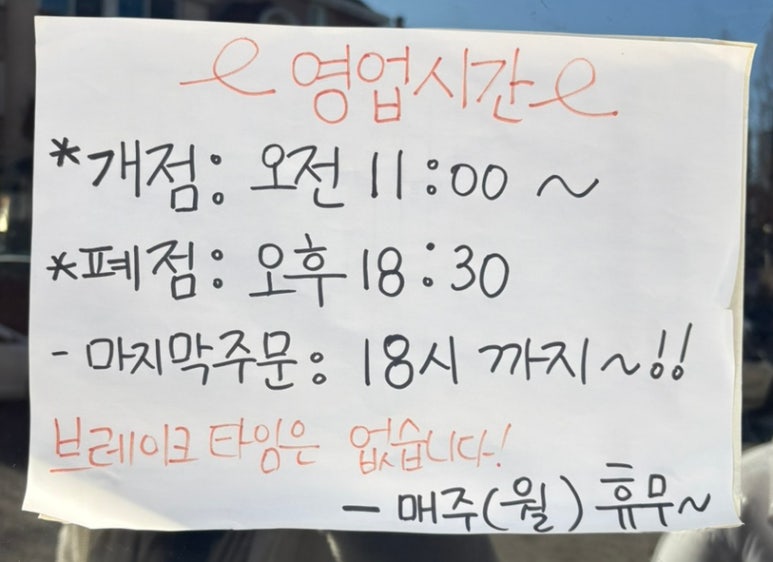 영업시간
*개점: 오전 11:00 ~
*폐점: 오후 18:30
- 마지막주문: 18시 까지~!!
브레이크 타임은 없습니다!
- 매주(월) 휴무~